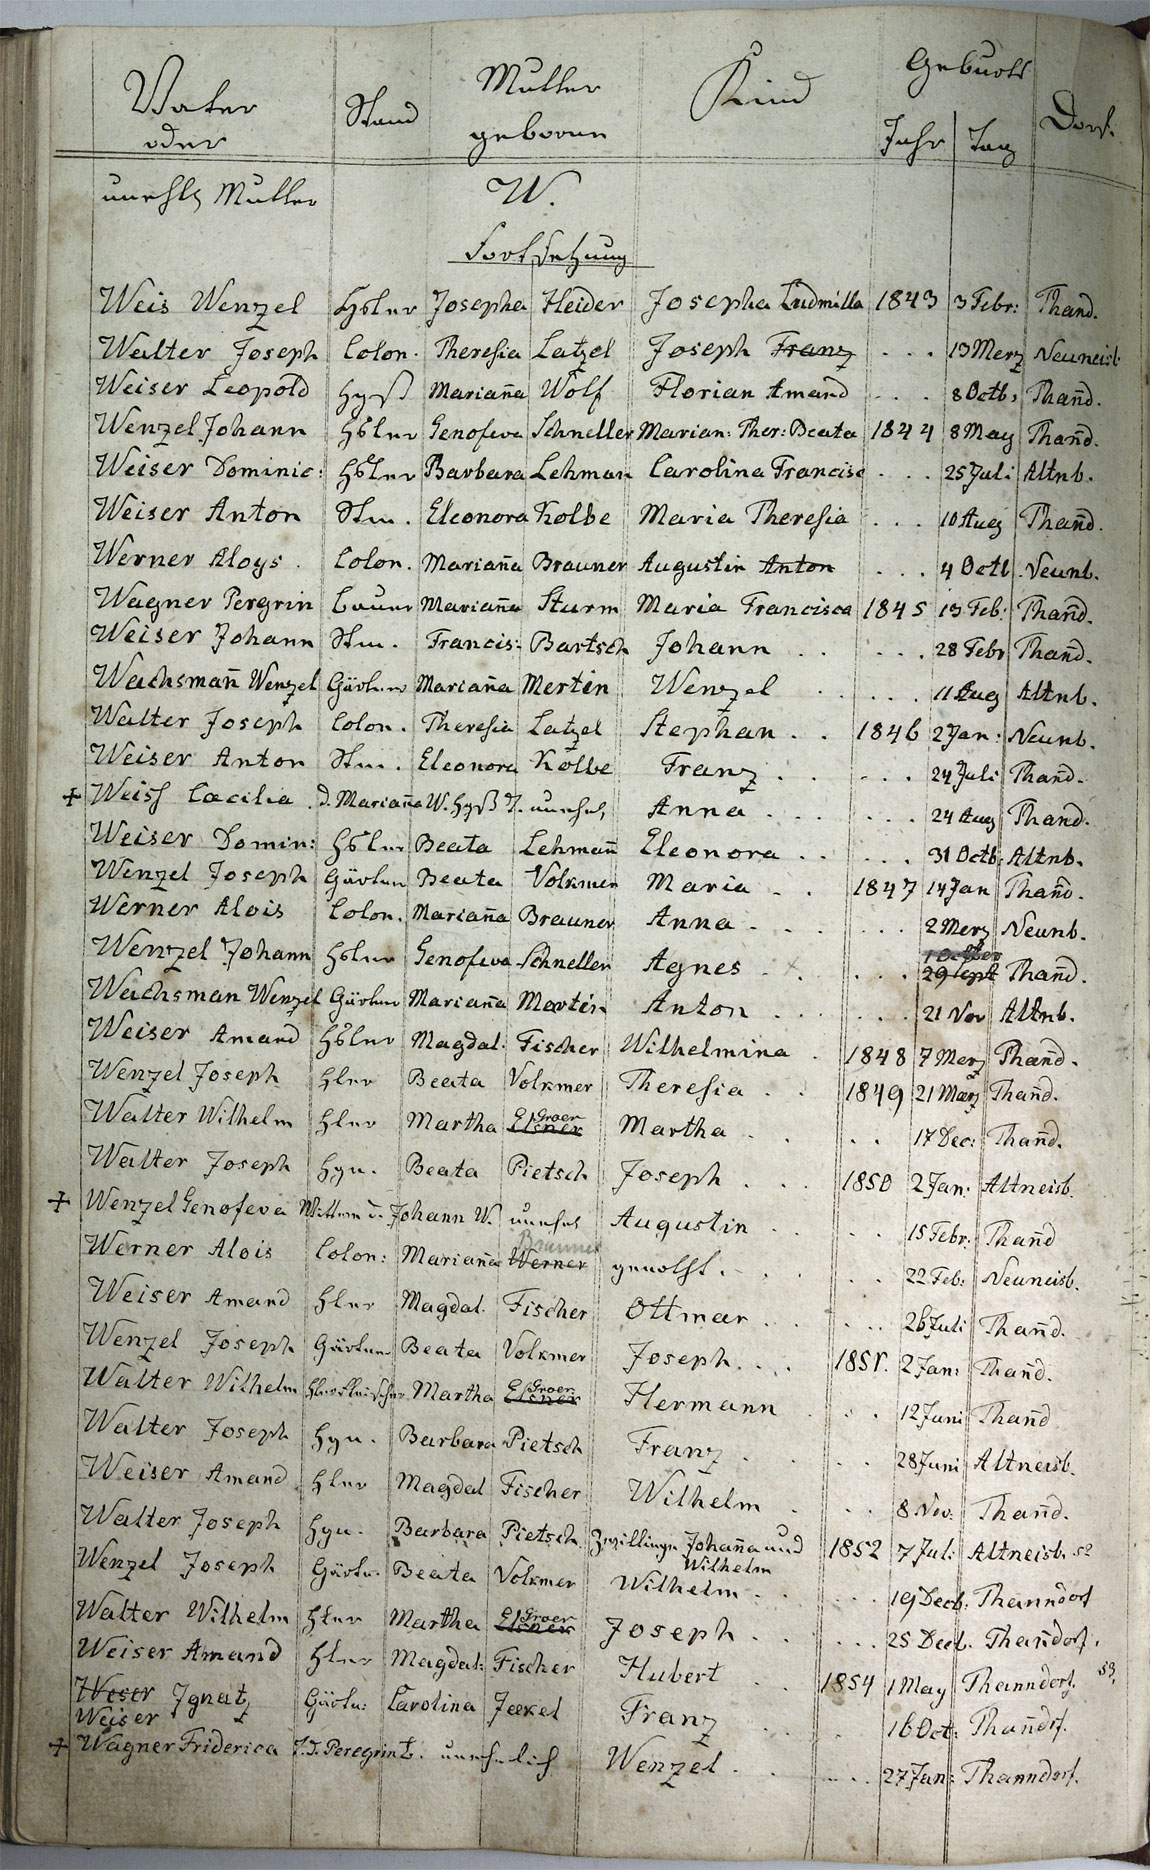 Vater oder Stand Mutter geborne Kind Geburts Jahr Tag Dorf
unehl Mutter W.
Fortsetzung
Weis Wenzel Hsler Josepha Heider Josepha Ludmilla 1843 3 Febr: Thand.
Walter Joseph Colon. Theresia Latzel Joseph Franz . . . 13 Merz Neuneisb
Weiser Leopold Hgß Mariana Wolf Florian Amand . . . 8 Octb: Thand.
Wenzel Johann Hsler Genofeva Schneller Marian: Ther: Beata 1844 8 May Thand.
Weiser Dominic: Hsler Barbara Lehman Carolina Francisc . . . 25 Juli Altnb.
Weiser Anton Stm. Eleonora Kolbe Maria Theresia . . . 10 Aug Thand.
Werner Aloys. Colon. Mariana Brauner Augustin Anton . . . 4 Octb Neunb.
Wagner Pergrin Bauer Mariana Sturm Maria Francisca 1845 13 Feb: Thand.
Weiser Johann Stm. Francis: Bartsch Johann . . . . . 28 Febr Thand.
Wachsman Wenzel Gärtner Mariana Mertin Wenzel . . . . . 11 Aug Altnb.
Walter Joseph Colon. Theresia Latzel Stephan . . 1846 2 Jan: Neunb.
Weiser Anton Stm. Eleonora Kolbe Franz . . . . . 24 Juli Thand.
+ Weiss Cæcilia. d. Mariana W. Hgß T. unehel Anna . . . . . 24 Aug Thand.
Weiser Domin: Hsler Beata Lehman Eleonora . . . . . 31 Octb: Altnb.
Wenzel Joseph Gärtner Beata Volkmer Maria . . 1847 14 Jan Thand.
Werner Alois Colon. Mariana Brauner Anna . . . . . 2 Merz Neunb.
Wenzel Johann Hsler Genofeva Schneller Agnes . x . . . 29 Sept Thand.
Wachsman Wenzel Gärtner Mariana Mertin Anton . . . . . 21 Nov Altnb.
Weiser Amand Hsler Magdal. Fischer Wilhelmina . 1848 7 Merz Thand.
Wenzel Joseph Hler Beata Volkmer Theresia . . 1849 21 Marz Thand.
Walter Wilhelm Hler Martha Elsner Groer Martha . . . . 17 Dec: Thand.
Walter Joseph Hgn. Beata Pietsch Joseph . . . 1850 2 Jan. Altneisb.
+ Wenzel Genofeva Wittwe d. Johann W. unehel Augustin . . . 15 Febr. Thand
Werner Alois Colon: Mariana Werner Brauner genothft. . . . . 22 Feb: Neuneisb.
Weiser Amand Hler Magdal. Fischer Ottmar . . . . . 26 Juli Thand.
Wenzel Joseph Gärtner Beata Volkmer Joseph . . . 1851. 2 Jan: Thand.
Walter Wilhelm Hlerfleischer Martha Elsner Groer Hermann . . . 12 Juni Thand
Walter Joseph Hgn. Barbara Pietsch Franz . . . 28 Juni Altneisb.
Weiser Amand Hler Magdal Fischer Wilhelm . . . 8 Nov. Thand.
Walter Joseph Hgn. Barbara Pietsch. Zwillinge Johana und Wilhelm 1852 7 Juli Altneisb. 52
Wenzel Joseph Gärtn. Beata Volkmer Wilhelm . . . . 19 Decb. Thanndorf
Walter Wilhelm Hler Martha Elsner Groer Joseph . . . . . 25 Decb. Thandorf.
Weiser Amand Hler Magdal: Fischer Hubert . . 1854 1 May Thanndorf. 53
Weser Weiser Ignatz Gärtn: Carolina Jeekel Franz . . . 16 Oct: Thandf.
+ Wagner Friderica T. d. Peregrin B. unehelich Wenzel . . . . . 27 Jan: Thanndorf.